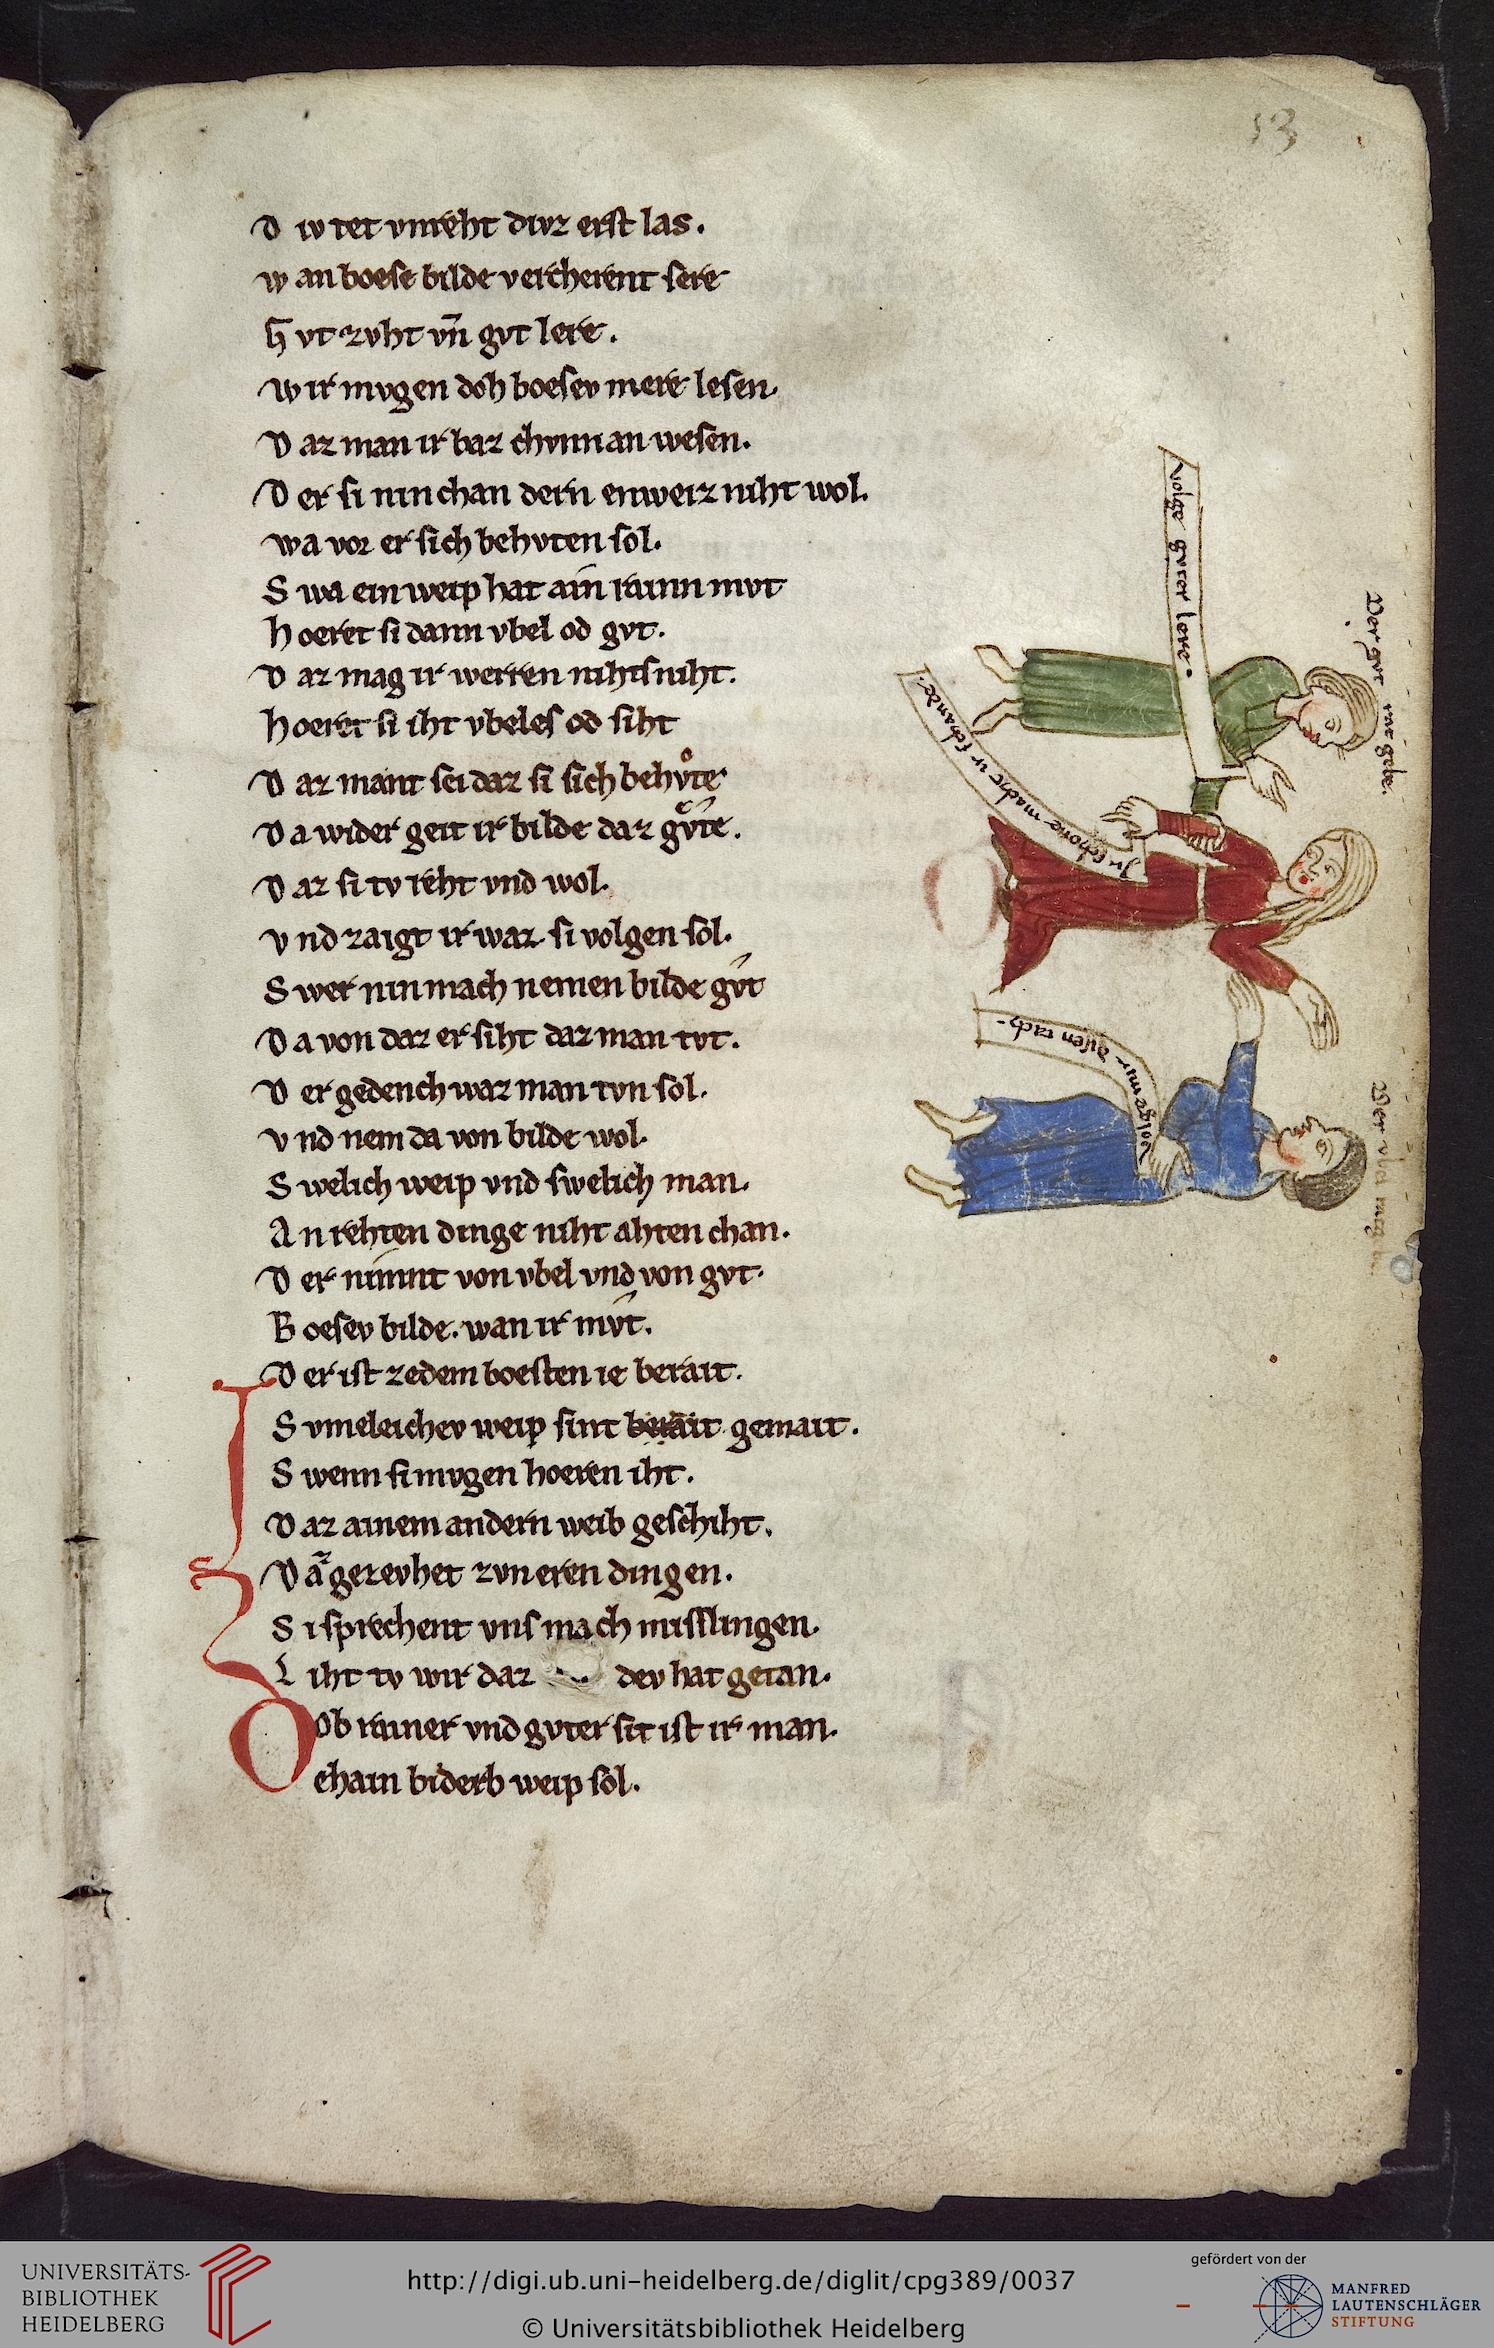 13
D iv tet vnreht divz erst las.
w an boese bilde vercherent sere
G vt zvht vñ gvt lere.
W ir mvgen doh boesev mere lesen.
D az man ir baz chvnn an wesen.
D er si nin chan dern enweiz niht wol.
wa vor er sich behvten sol.
S wa ein weip hat ain rainn mvt
h oeret si dann vbel od gvt.
D az mag ir werren nihtsniht.
h oeret si iht vbeles od siht
D az mant sei daz si sich behvͦte
D a wider geit ir bilde daz gvͤte.
D az si tv reht vnd wol.
v nd zaigt ir waz si volgen sol.
S wer nin mach nemen bilde gvt
D a von daz er siht daz man tvt.
D er gedench waz man tvn sol.
v nd nem da von bilde wol.
S welich weip vnd swelich man.
A n rehten dinge niht ahten chan.
D er nimnt von vbel vnd von gvt.
B oesev bilde. wan ir mvt.
D er ist ze dem boesten ie berait.
S vmeleichev weip sint berait gemait.
S wenn si mvgen hoeren iht.
D az ainem andern weib geschiht.
D aͣ gezevhet zvneren dingen.
S i sprechent vns mach misslingen.
L iht tv wir daz dev hat getan.
Ob rainer vnd gvter sit ist ir man.
D ehain biderb weip sol.
volge gvter lere.
Der gvt ratgebe.
Jr schone macht ir schande.
volge mir
Der vbel
UNIVERSITÄTS-
BIBLIOTHEK
HEIDELBERG
http://digi.ub.uni-heidelberg.de/diglit/cpg389/0037
© Universitätsbibliothek Heidelberg
gefördert von der
MANFRED
LAUTENSCHLÄGER
STIFTUNG